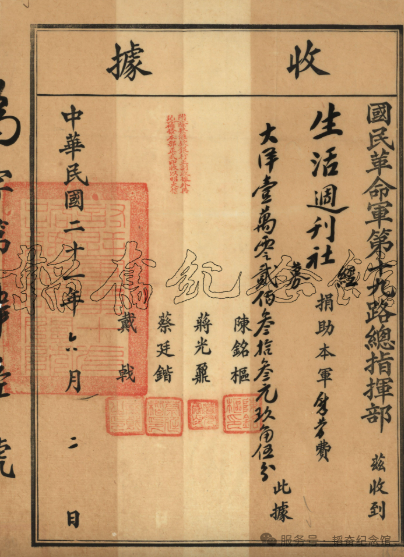 收據
國民革命軍第十九路總指揮部 茲收到
生活週刊社 經募 捐助本軍費
大洋壹萬零貳佰叁拾叁元玖角伍分 此據
陳銘樞
蔣光鼐
蔡廷鍇
戴戟
中華民國二十一年六月二日
字第 號
韜奮紀念館
服务号 · 韬奋纪念馆